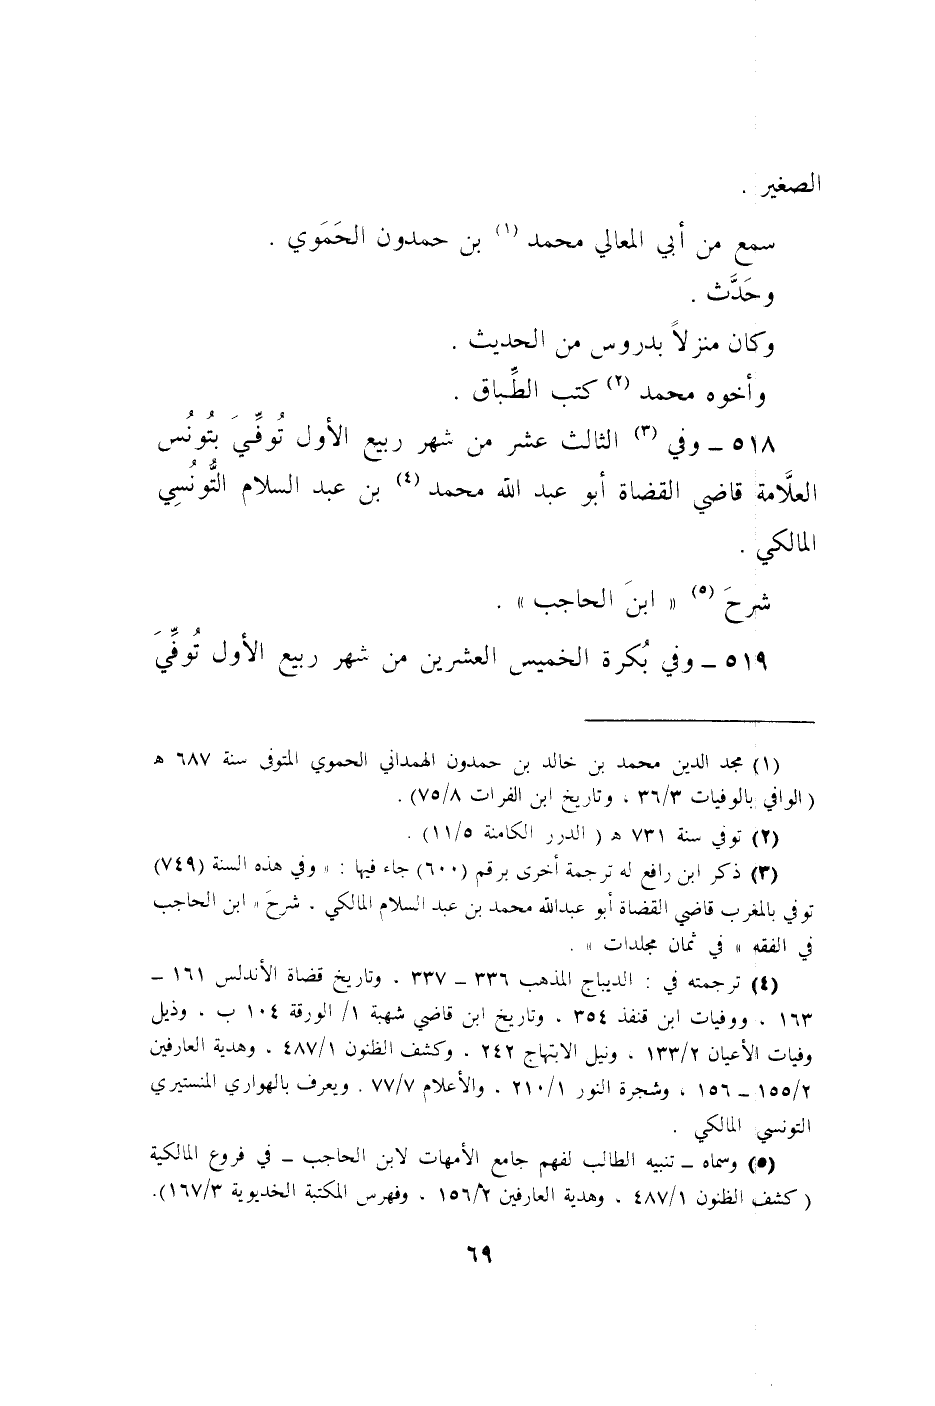 الصغير .
سمع من أبي المعالي محمد (١) بن حمدون الحَمَوي .
وحَدَّث .
وكان منزلاً بدروس من الحديث .
وأخوه محمد (٢) كتب الطِّباق .
٥١٨ ــ وفي (٣) الثالث عشر من شهر ربيع الأول تُوفِّيَ بتُونُس
العلَّامة قاضي القضاة أبو عبد الله محمد (٤) بن عبد السلام التُّونُسِي
المالكي .
شرحَ (٥) « ابنَ الحاجب » .
٥١٩ ــ وفي بُكرة الخميس العشرين من شهر ربيع الأول تُوفِّيَ
(١) مجد الدين محمد بن خالد بن حمدون الهمداني الحموي المتوفى سنة ٦٨٧ ه
( الوافي بالوفيات ٣٦/٣ ، وتاريخ ابن الفرات ٧٥/٨) .
(٢) توفي سنة ٧٣١ ه ( الدرر الكامنة ١١/٥) .
(٣) ذكر ابن رافع له ترجمة أخرى برقم (٦٠٠) جاء فيها : « وفي هذه السنة (٧٤٩)
توفي بالمغرب قاضي القضاة أبو عبدالله محمد بن عبد السلام المالكي . شرحَ « ابن الحاجب
في الفقه » في ثمان مجلدات » .
(٤) ترجمته في : الديباج المذهب ٣٣٦ ــ ٣٣٧ ، وتاريخ قضاة الأندلس ١٦١ ــ
١٦٣ ، ووفيات ابن قنفذ ٣٥٤ ، وتاريخ ابن قاضي شهبة ١/ الورقة ١٠٤ ب ، وذيل
وفيات الأعيان ١٣٣/٢ ، ونيل الابتهاج ٢٤٢ ، وكشف الظنون ٤٨٧/١ ، وهدية العارفين
١٥٥/٢ ــ ١٥٦ ، وشجرة النور ٢١٠/١ ، والأعلام ٧٧/٧ . ويعرف بالهواري المنستيري
التونسي المالكي .
(٥) وسماه ــ تنبيه الطالب لفهم جامع الأمهات لابن الحاجب ــ في فروع المالكية
( كشف الظنون ٤٨٧/١ ، وهدية العارفين ١٥٦/٢ ، وفهرس المكتبة الخديوية ١٦٧/٣).
٦٩